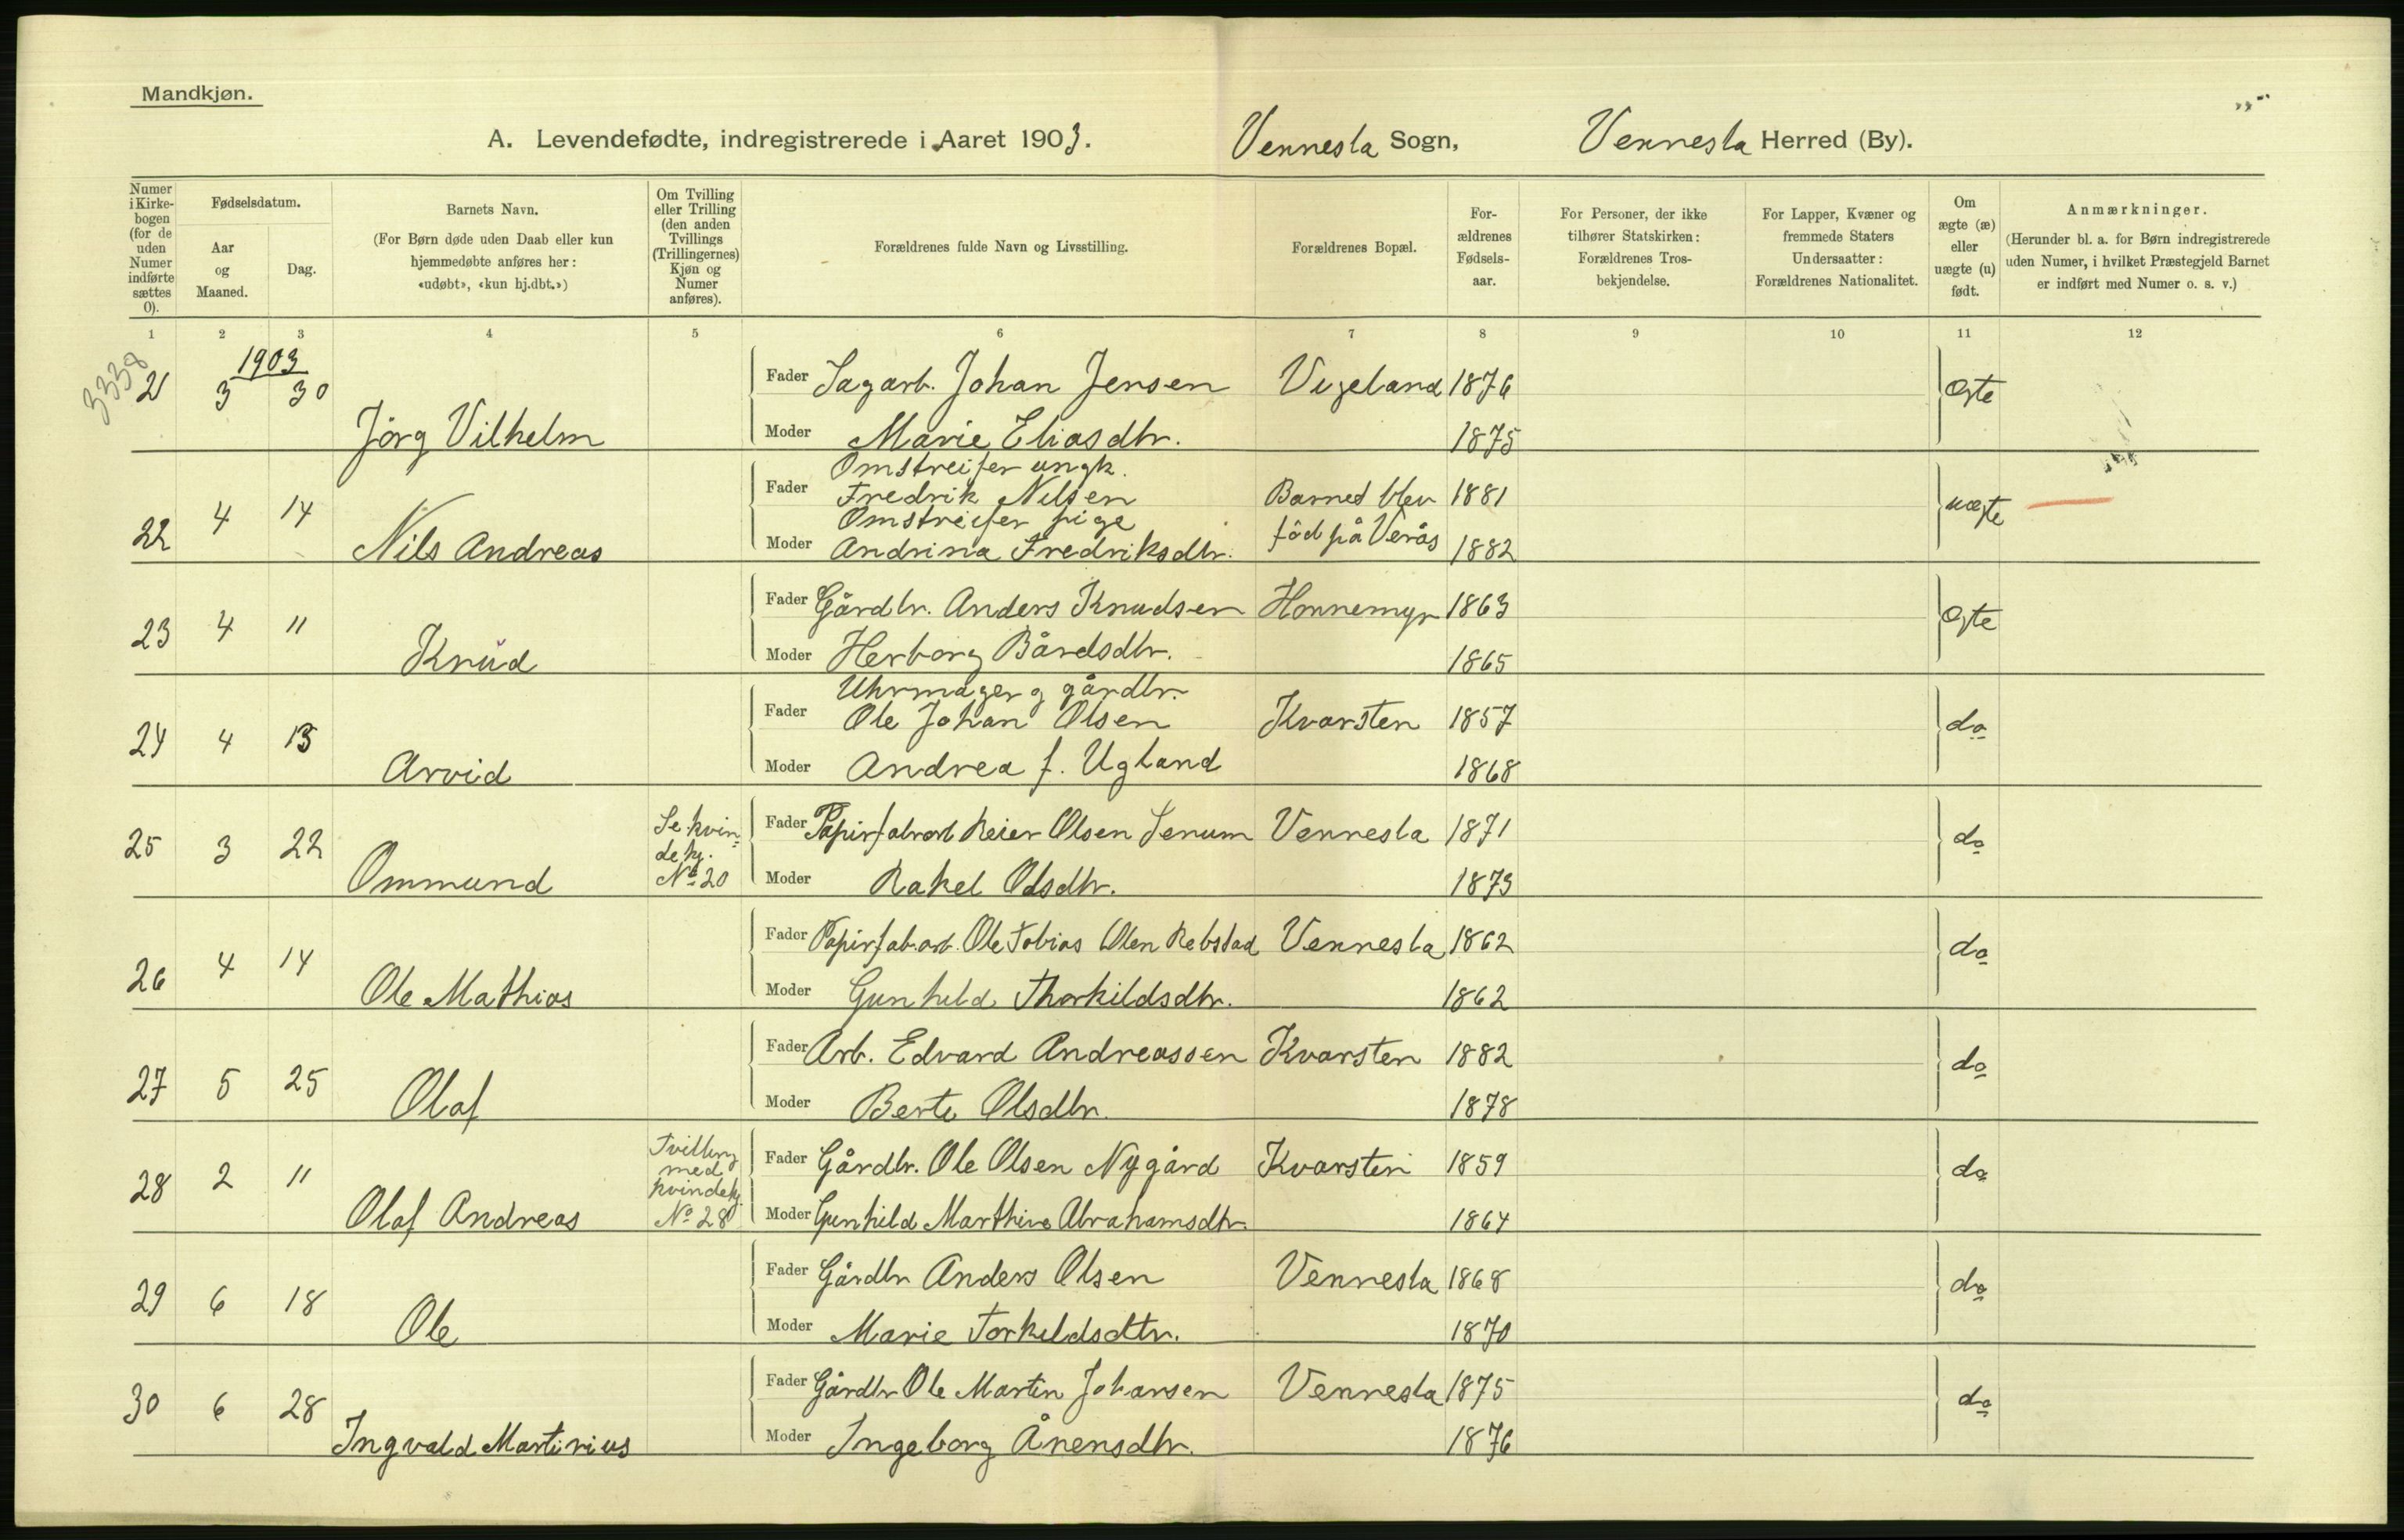 Mandkjøn.
A. Levendefødte, indregistrerede i Aaret 1903. Vennesla Sogn, Vennesla Herred (By).
Numer i Kirke-bogen (for de uden Numer indførte sættes 0).
Fødselsdatum.
Aar og Maaned.
Dag.
Barnets Navn.
(For Børn døde uden Daab eller kun
hjemmedøbte anføres her:
«udøbt», «kun hj.dbt.»)
Om Tvilling
eller Trilling
(den anden
Tvillings
(Trillingernes)
Kjøn og
Numer
anføres).
Forældrenes fulde Navn og Livsstilling.
Forældrenes Bopæl.
For-
ældrenes
Fødsels-
aar.
For Personer, der ikke
tilhører Statskirken:
Forældrenes Tros-
bekjendelse.
For Lapper, Kvæner og
fremmede Staters
Undersaatter:
Forældrenes Nationalitet.
Om
ægte (æ)
eller
uægte (u)
født.
Anmærkninger.
(Herunder bl. a. for Børn indregistrerede
uden Numer, i hvilket Præstegjeld Barnet
er indført med Numer o. s. v.)
1 2 3 4 5 6 7 8 9 10 11 12
3338
1903
21 3 30 Jörg Vilhelm Fader Sagarb. Johan Jensen Vigeland 1876 Ægte
Moder Marie Eliasdtr. 1875
Omstreifer ungk.
22 4 14 Nils Andreas Fader Fredrik Nilsen Barnet blev 1881 uægte
Omstreifer pige
Moder Andrina Fredriksdtr. född på Verås 1882
23 4 11 Knud Fader Gårdbr. Anders Knudsen Honnemyr 1863 Ægte
Moder Herborg Bårdsdtr. 1865
Uhrmager g gårdbr.
24 4 13 Arvid Fader Ole Johan Olsen Kvarsten 1857 do
Moder Andrea f. Ugland 1868
25 3 22 Ommund Se kvin-
dekj.
No 20 Fader Papirfabrarb Reier Olsen Senum Vennesla 1871 do
Moder Rakel Olsdtr. 1873
26 4 14 Ole Mathias Fader Papirfab.arb. Ole Tobias Olsen Rebstad Vennesla 1862 do
Moder Gunhild Thorkildsdtr. 1862
27 5 25 Olaf Fader Arb. Edvard Andreassen Kvarsten 1882 do
Moder Berte Olsdtr. 1878
28 2 11 Olaf Andreas Tvilling
med
kvindekj.
No 28 Fader Gårdbr. Ole Olsen Nygård Kvarsten 1859 do
Moder Gunhild Marthine Abrahamsdtr. 1864
29 6 18 Ole Fader Gårdbr Anders Olsen Vennesla 1868 do
Moder Marie Torkildsdtr. 1870
30 6 28 Ingvald Martinius Fader Gårdbr Ole Martin Johansen Vennesla 1875 do
Moder Ingeborg Ånensdtr. 1876